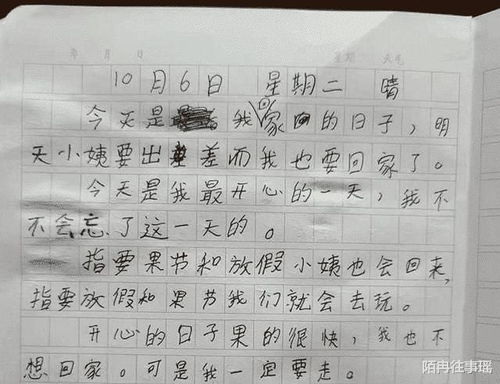 年 月 日 星期 天气
10月6日 星期二 晴
今天是我回家的日子，明
天小姨要出差而我也要回家了。
今天是我最开心的一天，我不
不会忘了这一天的。
指要果节和放假小姨也会回来，
指要放假和果节我们就会去玩。
开心的日子果的很快，我也不
想回家。可是我一定要走。
陌冉往事瑶